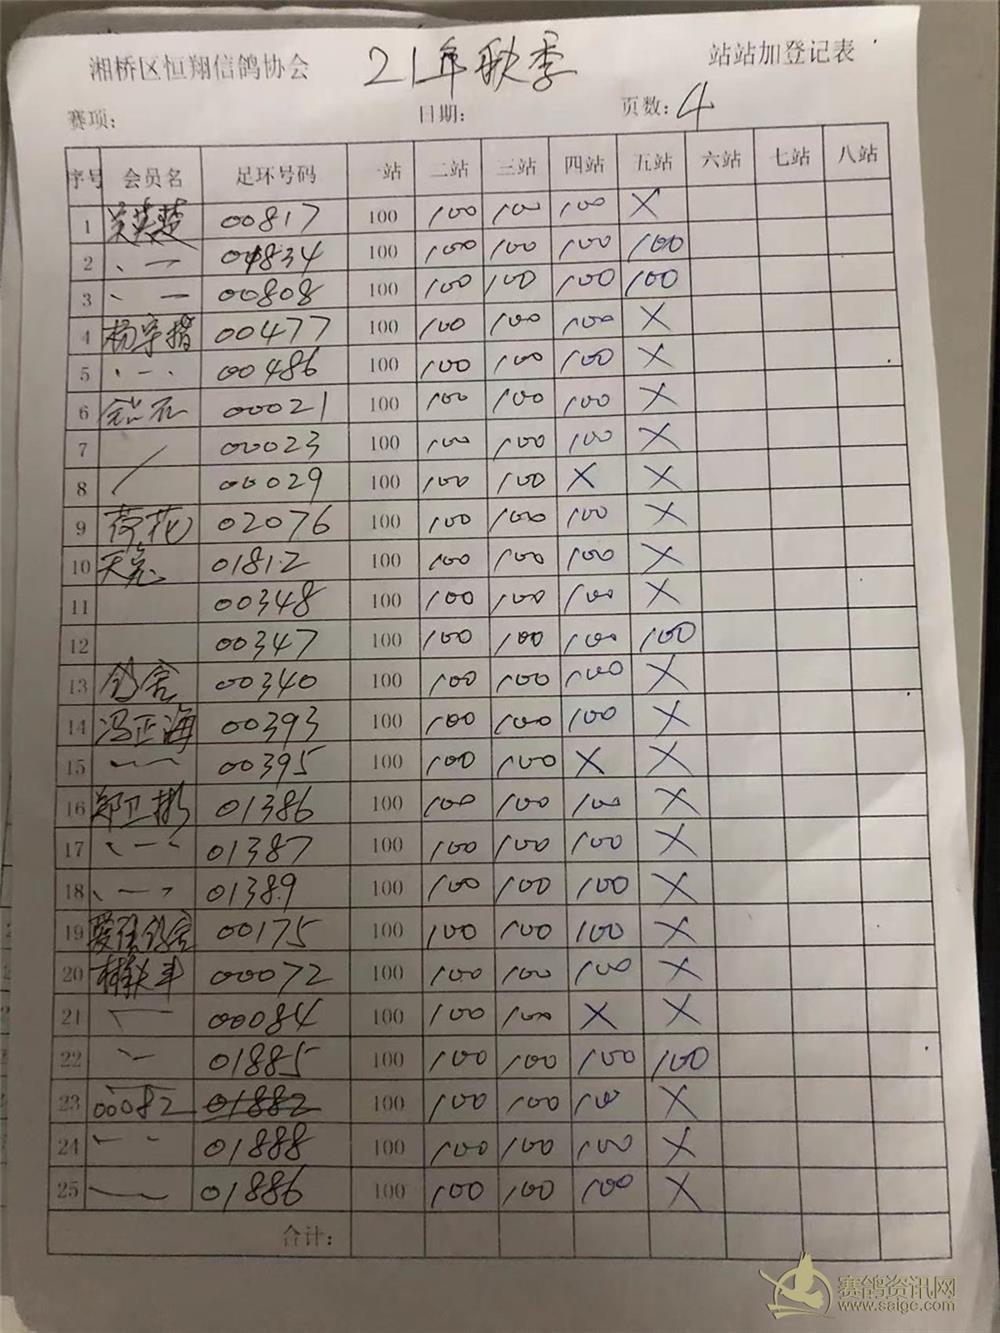 湘桥区恒翔信鸽协会 21年秋季 站站加登记表
赛项: 日期: 页数: 4
序号 会员名 足环号码 一站 二站 三站 四站 五站 六站 七站 八站
1 吴英楚 00817 100 100 100 100 X
2 、一 一 01834 100 100 100 100 100
3 、一 00808 100 100 100 100 100
4 杨宇楷 00477 100 100 100 100 X
5 、一、 00486 100 100 100 100 X
6 00021 100 100 100 100 X
7 00023 100 100 100 100 X
8 00029 100 100 100 X X
9 荷花 02076 100 100 100 100 X
10 01812 100 100 100 100 X
11 00348 100 100 100 100 X
12 00347 100 100 100 100 100
13 鸽舍 00340 100 100 100 100 X
14 冯正海 00393 100 100 100 100 X
15 00395 100 100 100 X X
16 郑卫彬 01386 100 100 100 100 X
17 01387 100 100 100 100 X
18 01389 100 100 100 100 X
19 鸽舍 00175 100 100 100 100 X
20 00072 100 100 100 100 X
21 00084 100 100 100 X X
22 01885 100 100 100 100 100
23 00082 01882 100 100 100 100 X
24 01888 100 100 100 100 X
25 01886 100 100 100 100 X
合计:
赛鸽资讯网
www.saigc.com